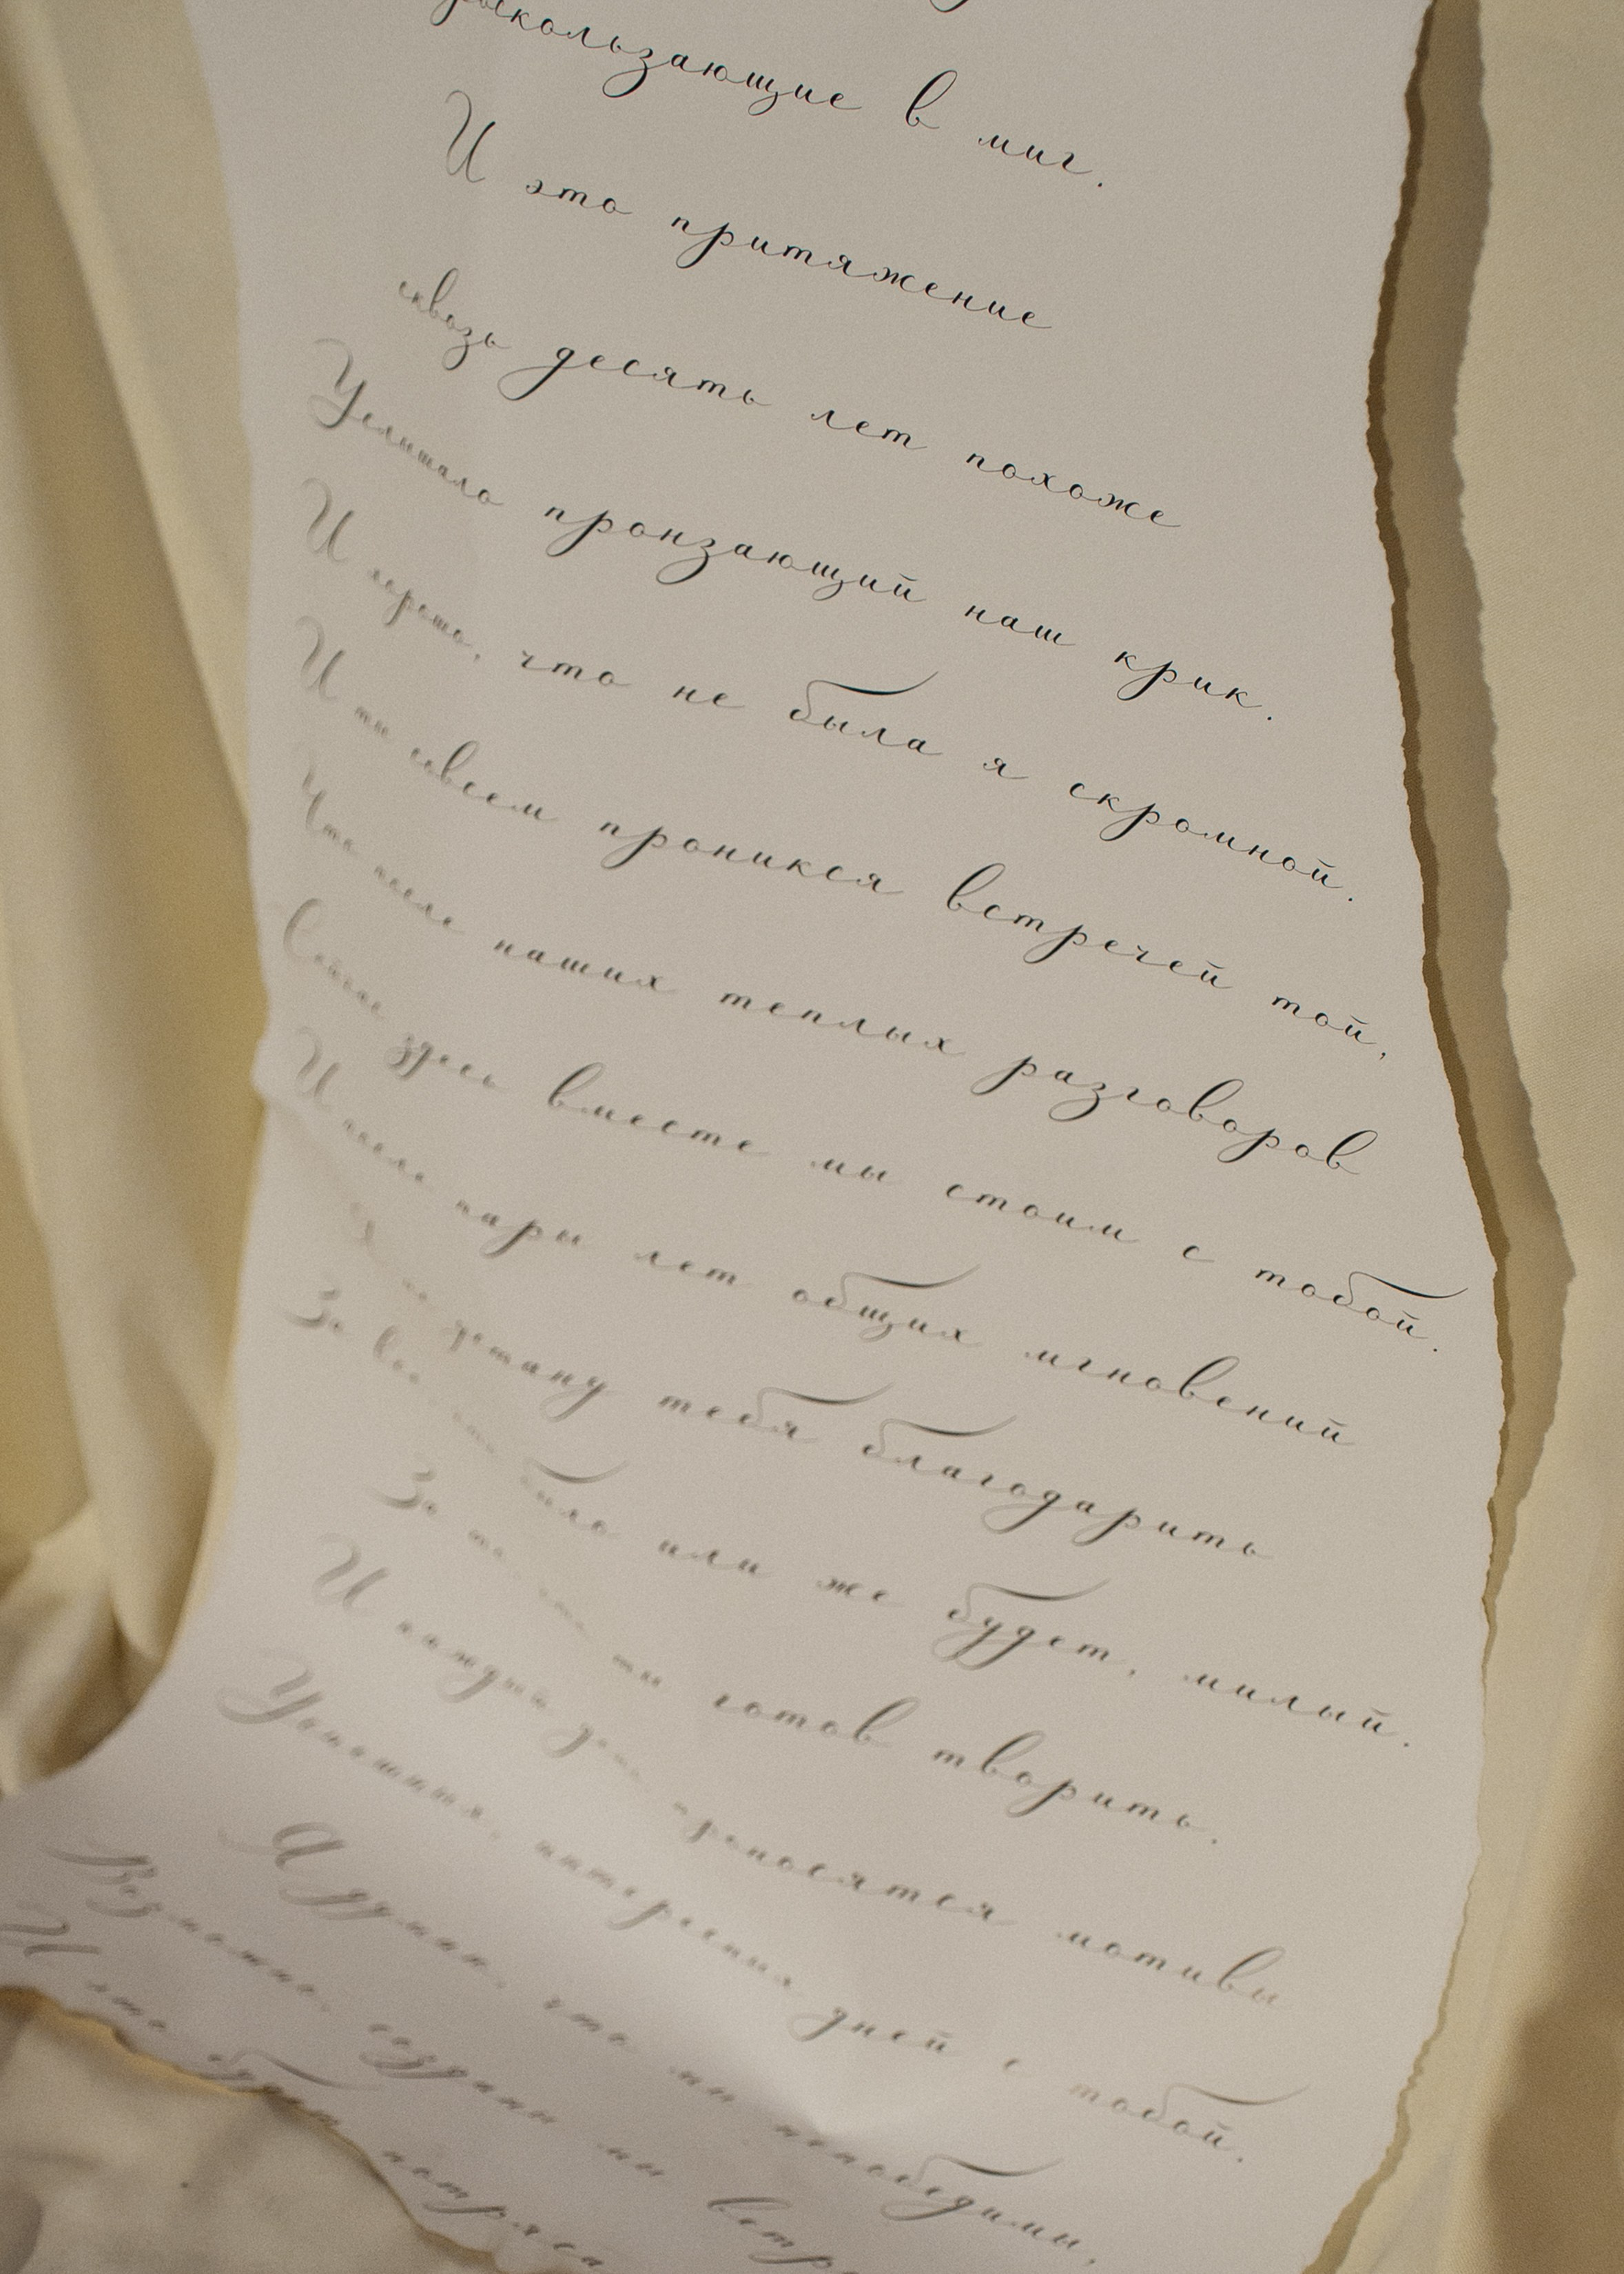 в миг.
И это притяжение
сквозь десять лет похоже
Услышало пронзающий наш крик.
И хорошо, что не была я скромной.
И ты совсем проникся встречей той,
Что после наших теплых разговоров
Сейчас здесь вместе мы стоим с тобой.
И после пары лет общих мгновений
Я не устану тебя благодарить
За все, что было или же будет, милый.
За то, что ты готов творить.
И каждый день приносятся мотивы
интересных дней с тобой.
Я думаю, что мы непобедимы,
Возможно, созданы мы
И это будет